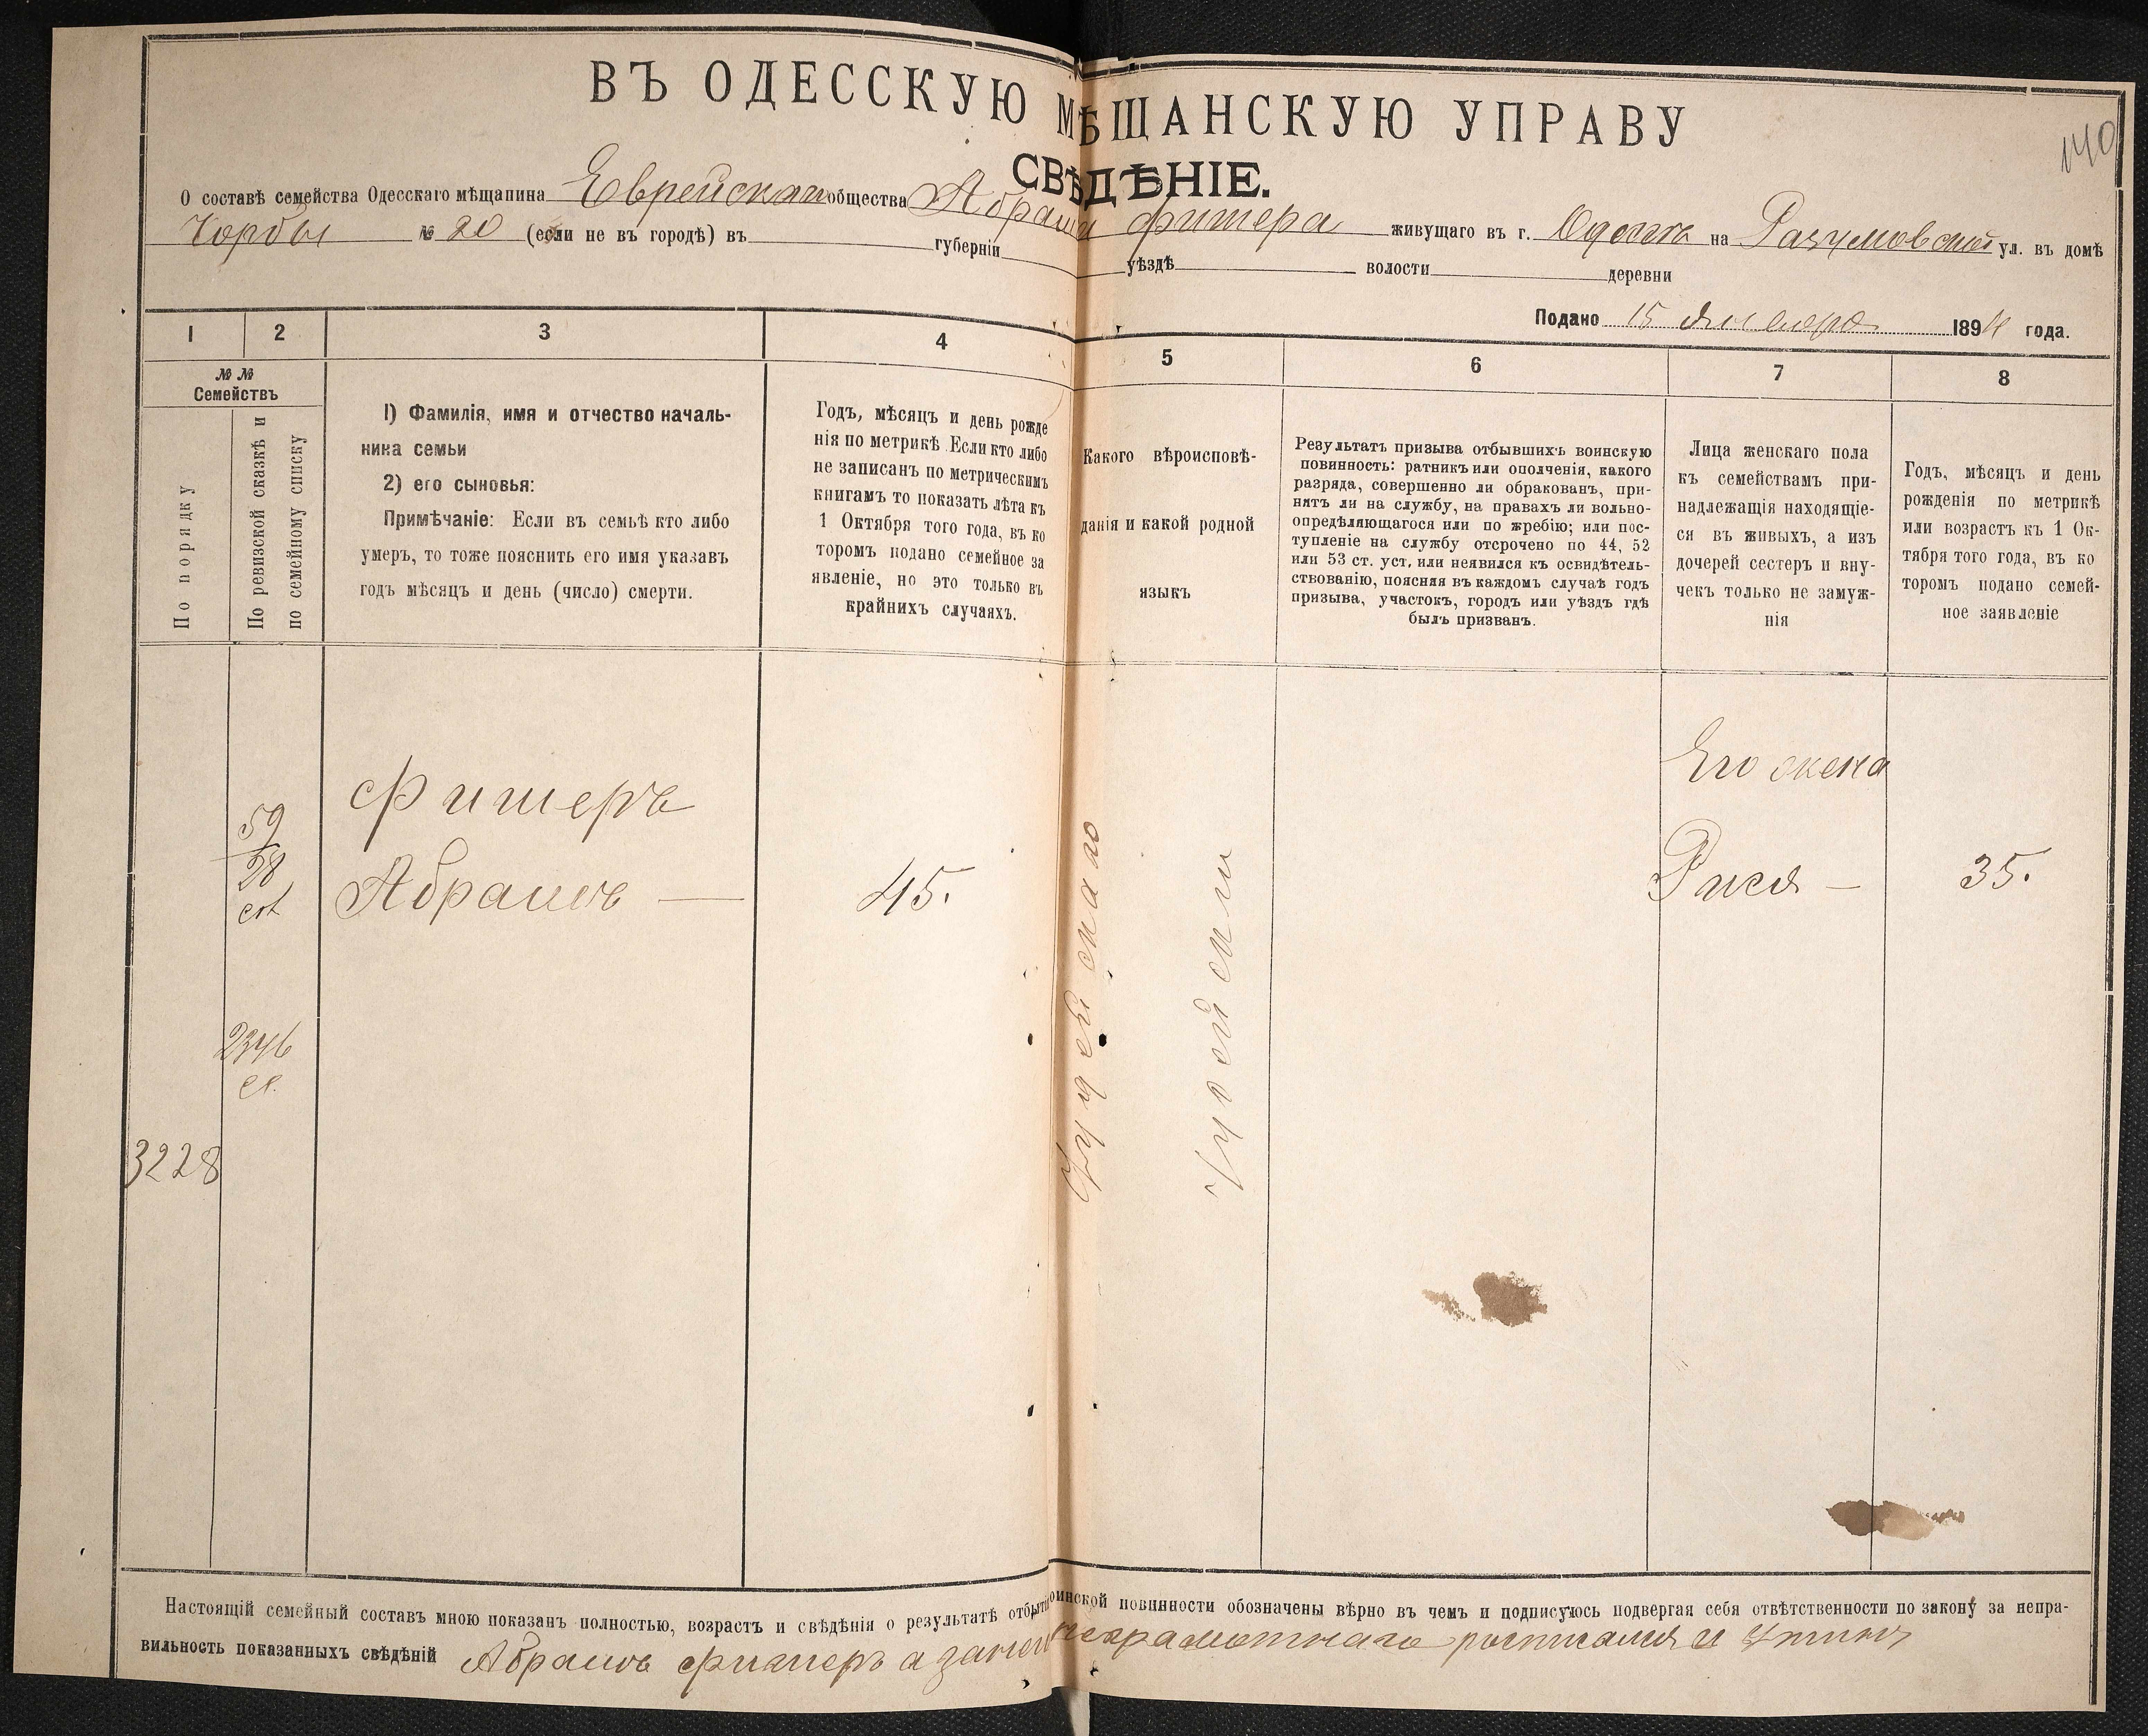 ВЪ ОДЕССКУЮ МѢЩАНСКУЮ УПРАВУ
140
СВѢДѢНІЕ.
О составѣ семейства Одесскаго мѣщанина Еврейскаго общества Абрама Фишера живущаго въ г. Одессѣ на Разумовской ул. въ домѣ
Чорбы № 20 (если не въ городѣ) въ губерніи уѣздѣ волости деревни
Подано 15 Января 1894 года.
1 2 3 4 5 6 7 8
№ №
Семействъ
По порядку
По ревизской сказкѣ и
по семейному списку
1) Фамилія, имя и отчество началь-
ника семьи
2) его сыновья:
Примѣчаніе: Если въ семьѣ кто либо
умеръ, то тоже пояснить его имя указавъ
годъ мѣсяцъ и день (число) смерти.
Годъ, мѣсяцъ и день рожде
нія по метрикѣ Если кто либо
не записанъ по метрическимъ
книгамъ то показать лѣта къ
1 Октября того года, въ ко
торомъ подано семейное за
явленіе, но это только въ
крайнихъ случаяхъ.
Какого вѣроисповѣ-
данія и какой родной
языкъ
Результатъ призыва отбывшихъ воинскую
повинность: ратникъ или ополченія, какого
разряда, совершенно ли обракованъ, при-
нятъ ли на службу, на правахъ ли вольно-
опредѣляющагося или по жребію; или пос-
тупленіе на службу отсрочено по 44, 52
или 53 ст. уст. или неявился къ освидѣтель-
ствованію, поясняя въ каждомъ случаѣ годъ
призыва, участокъ, городъ или уѣздъ гдѣ
былъ призванъ.
Лица женскаго пола
къ семействамъ при-
надлежащія находящіе-
ся въ живыхъ, а изъ
дочерей сестеръ и вну-
чекъ только не замуж-
нія
Годъ, мѣсяцъ и день
рожденія по метрикѣ
или возрастъ къ 1 Ок-
тября того года, въ ко
торомъ подано семей-
ное заявленіе
Его жена
Фишеръ
59
28
Абрамъ — 45.
Іудейскаго
Рися — 35.
2346
3228
Настоящій семейный составъ мною показанъ полностью, возрастъ и свѣдѣнія о результатѣ отбытія воинской повинности обозначены вѣрно въ чемъ и подписуюсь подвергая себя отвѣтственности по закону за непра-
вильность показанныхъ свѣдѣній Абрамъ Фишеръ а за него неграмотнаго росписался